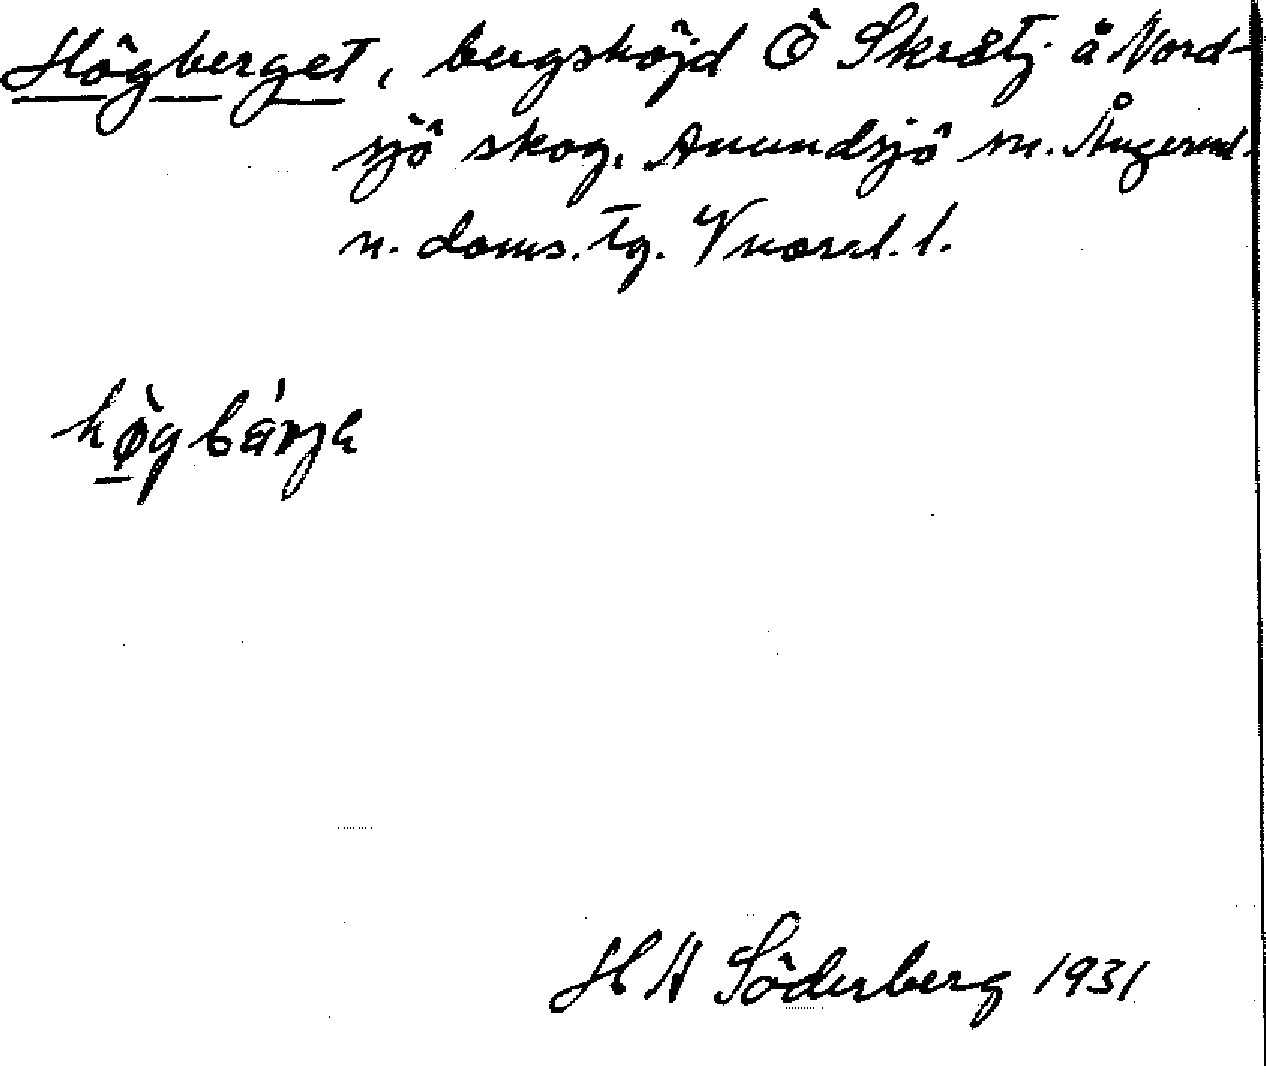 Högberget, bergshöjd Ö Skråtj. å Nord-
sjö skog, Anundsjö sn. Ångerml.
n. doms. tg. Vnorrl. l.
høgbärjə
H A Söderberg 1931